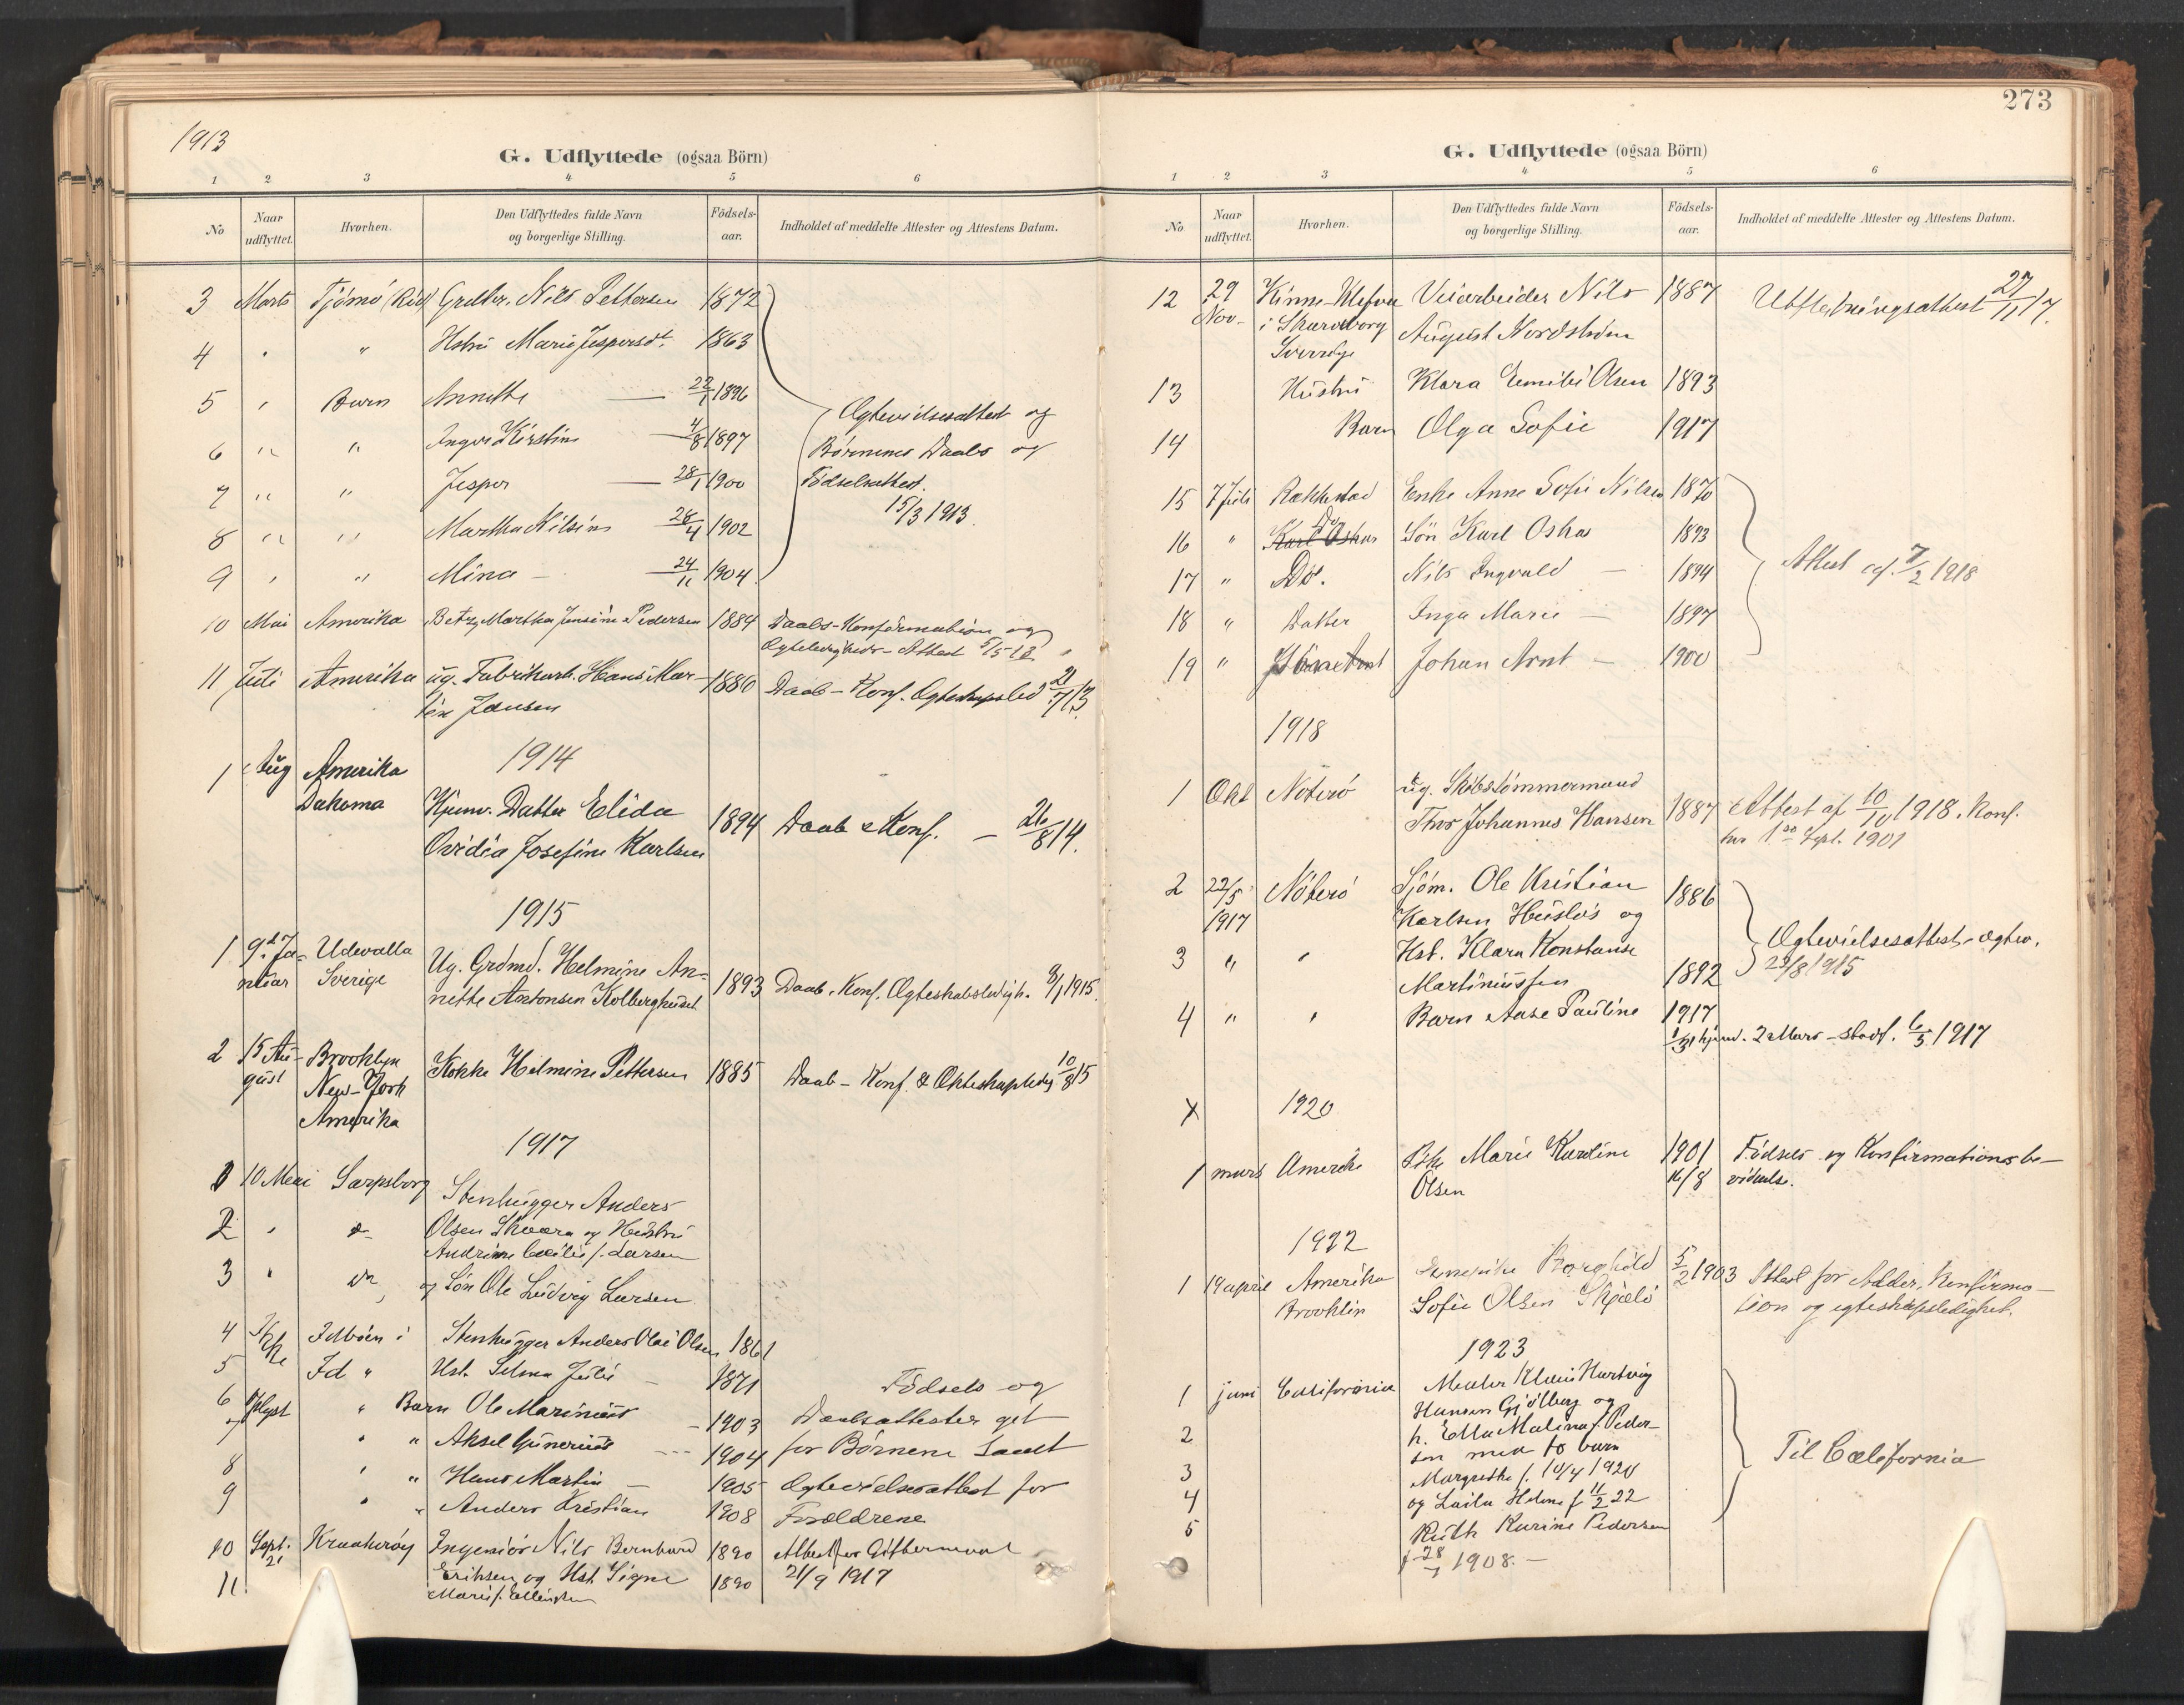 1913
G. Udflyttede (ogsaa Börn)
1 2 3 4 5 6
No Naar udflyttet. Hvorhen. Den Udflyttedes fulde Navn og borgerlige Stilling. Födsels-aar. Indholdet af meddelte Attester og Attestens Datum.
3 Marts Tjömö Nils Pettersen 1872
4 " " Hstru Marie Jespersdt. 1863
5 " Barn Annette 22/1 1896
6 " " Inger Kirstine 4/8 1897
7 " " Jesper 28/1 1900
8 " " Martha Nilsine 28/4 1902
9 " " Mina 24/11 1904
Ægtevielsesattest og
Börnenes Daabs og
Födselsattest.
15/3 1913.
10 Mai Amerika Betzy Martha Jensine Pedersen 1884 Daabs-Konfirmation og
Attest 5/5 13
11 Juli Amerika ug. Fabrikarb. Hans Mar- 1880 Daab-Konf. 21/7 13.
tin Jansen
1914
1 Aug Amerika
Dakoma Datter Elida
Ovidia Josefine Karlsen 1894 Daab & Konf. – 26/8 14.
1915
1 9d Ja- Udevalla Ug. Grdmd. Helmine An-
nuar Sverige nette Antonsen Kolberghuset 1893 Daab. Konf. Ægteskabsledigh. 8/1 1915.
2 15 Au- Brooklyn Kokke Helmine Pettersen 1885 Daab - Konf. & Ekteskapledig 10/8 15
gust New-York
Amerika
1917
1 10 Mai Sarpsborg Stenhugger Anders
2 " Olsen Skaara og Hustru
Andrine Cecilie f. Larsen
3 " og Sön Ole Ludvig Larsen
4 Idböen i Stenhugger Anders Olai Olsen 1861
5 Id " Hst. Selma Julie – 1871
6 " Barn Ole Marinius – 1903
7 " " Aksel Gunerius – 1904
8 " " Hans Martin – 1905
9 " " Anders Kristian 1908
Födsels og
Daabsattester
for Börnene samt
Ægtevielsesattest for
Forældrene
10 Sept. 21 Kraakeröy Ingeniör Nils Bernhard 1890 Attest for Giftermaal
11 Eriksen og Hst. Signe 1890 21/9 1917
Marie f. Ellingsen
273
G. Udflyttede (ogsaa Börn)
1 2 3 4 5 6
No Naar udflyttet. Hvorhen. Den Udflyttedes fulde Navn og borgerlige Stilling. Födsels-aar. Indholdet af meddelte Attester og Attestens Datum.
12 29 Kinne-Klefva Veiarbeider Nils 1887 Utflytningsattest 27/11 17.
Nov- i Skaraborg August Nordström
Sverrige
13 Hustru Klara Emilie Olsen 1893
14 Barn Olga Sofie 1917
15 7 Juli Rakkestad Enke Anne Sofie Nilsen 1870
16 " Karl Oskar Do Sön Karl Oskar 1893
17 " Do. Nils Ingvald – 1894
18 " Datter Inga Marie – 1897
19 " Johan Arnt – 1900
Attest af 7/2 1918
1918
1 Okt Nöterö ug. Skibstömmermand
Thor Johannes Hansen 1887 Attest af 10/10 1918. Konf.
her 1ste Sept. 1901
2 22/5 Nöterö Sjöm. Ole Kristian 1886
1917 Karlsen Huslös og
3 " " Hst. Klara Konstanse
Martiniussen 1892
Ægtevielsesattest - ægtev.
29/8 1915
4 " " Barn Aase Pauline 1917
2 Mars - stadf. 6/5 1917
X 1920
1 mars Amerika Pike Marie Karoline 1901 Födsels og Konfirmationsbe-
Olsen 16/8 vidnelse.
1922
1 19 april Amerika Borghild 5/2 1903 Attest for Alder, Konfirma-
Brooklin Sofie Olsen Skjælö sion og egteskapsledighet.
1923
1 juni California Maler Klaus Hartvig
Hansen Gjölberg og
2 h. Ella Malina f. Peder-
sen med to barn
3 Margrethe f. 10/4 1920
4 og Laila Helene f. 11/2 22
5 Ruth Karine Pedersen
1908. –
Til California